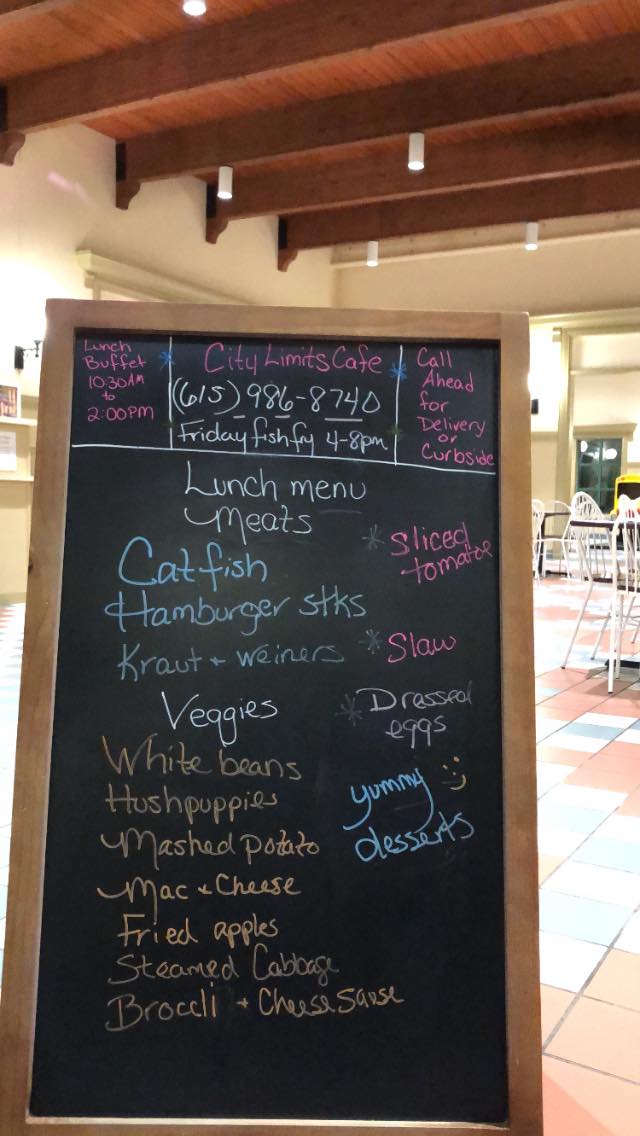 Lunch
Buffet
10:30AM
to
2:00pm
City Limits Cafe
(615) 986-8740
Friday fish fry 4-8pm
Call
Ahead
for
Delivery
or
Curbside
Lunch menu
Meats
Catfish
Hamburger stks
Kraut + weiners
* Sliced
tomatoe
* Slaw
* Dressed
eggs
Veggies
White beans
Hushpuppies
Mashed potato
Mac + Cheese
Fried apples
Steamed Cabbage
Broccli + Cheese sause
yummy
desserts